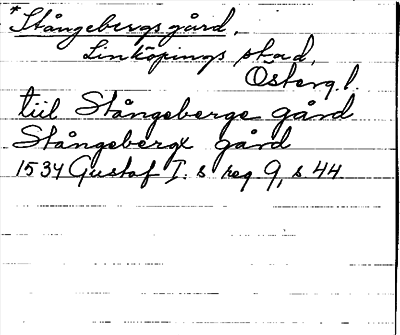 *Stångebergs gård,
Linköpings stad,
Österg. l.
till Stångeberge gård
Stångebergx gård
1534 Gustaf I:s reg 9, s 44